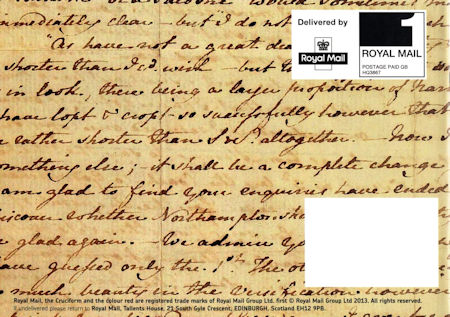 immediately clear – but I do not
"As have not a great dea
shorter than I cd wish – but
in look, there being a larger proportion of Nar
have lopt & cropt so successfully however that
rather shorter than S. & S. altogether. — Now I
omething else; it shall be a complete change
am glad to find your enquiries have ended
iscover whether Northamptonsh
glad again. — We admire your
ave guessed only the 1st. The ot
much beauty in the Versification however
Delivered by
Royal Mail
1
ROYAL MAIL
POSTAGE PAID GB
HQ3867
Royal Mail, the Cruciform and the colour red are registered trade marks of Royal Mail Group Ltd. first © Royal Mail Group Ltd 2013. All rights reserved.
If undelivered please return to Royal Mail, Tallents House, 21 South Gyle Crescent, EDINBURGH, Scotland EH12 9PB.